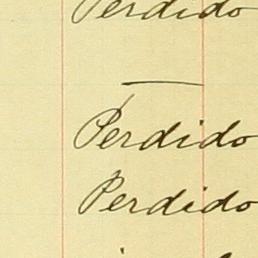 Perdido
Perdido
Perdido